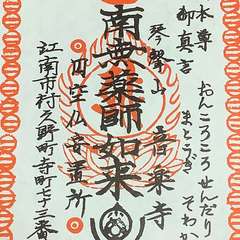 本尊
御真言
おんころころ せんだり
まとうぎ そわか
琴聲山
音楽寺
南無薬師如来
円空仏安置所
江南市村久野町寺町七十三番